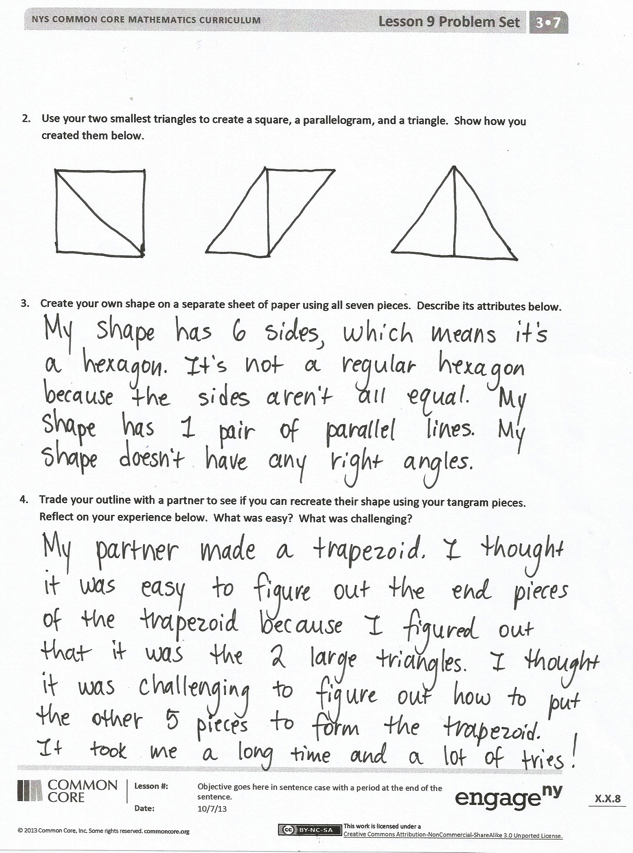 NYS COMMON CORE MATHEMATICS CURRICULUM
Lesson 9 Problem Set
3•7
2. Use your two smallest triangles to create a square, a parallelogram, and a triangle. Show how you
created them below.
3. Create your own shape on a separate sheet of paper using all seven pieces. Describe its attributes below.
My shape has 6 sides, which means it's
a hexagon. It's not a regular hexagon
because the sides aren't all equal. My
shape has 1 pair of parallel lines. My
shape doesn't have any right angles.
4. Trade your outline with a partner to see if you can recreate their shape using your tangram pieces.
Reflect on your experience below. What was easy? What was challenging?
My partner made a trapezoid. I thought
it was easy to figure out the end pieces
of the trapezoid because I figured out
that it was the 2 large triangles. I thought
it was challenging to figure out how to put
the other 5 pieces to form the trapezoid.
It took me a long time and a lot of tries!
COMMON
CORE
Lesson #:
Objective goes here in sentence case with a period at the end of the
sentence.
Date:
10/7/13
engage ny
X.X.8
© 2013 Common Core, Inc. Some rights reserved. commoncore.org
cc BY-NC-SA
This work is licensed under a
Creative Commons Attribution-NonCommercial-ShareAlike 3.0 Unported License.